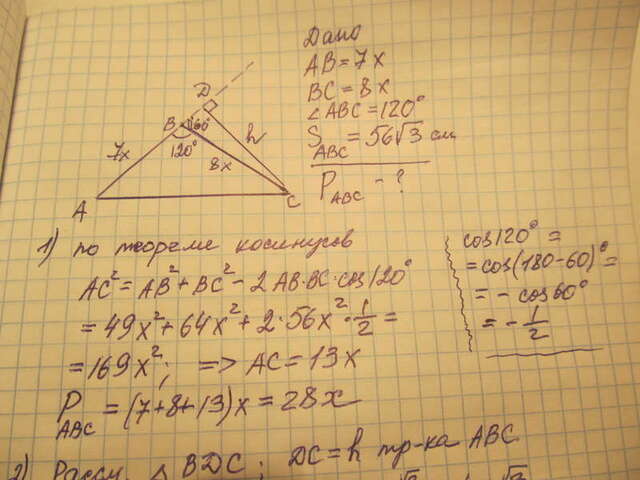 Дано
AB = 7x
BC = 8x
∠ABC = 120°
S_ABC = 56√3 см
P_ABC - ?
D
B 60°
h
7x
120°
8x
A
C
1) по теореме косинусов
AC² = AB² + BC² - 2AB·BC·cos120°
= 49x² + 64x² + 2·56x²·1/2 =
= 169x²; => AC = 13x
P_ABC = (7+8+13)x = 28x
cos120° =
= cos(180-60)° =
= - cos60°
= - 1/2
2) Рассм. △ BDC; DC = h тр-ка ABC.